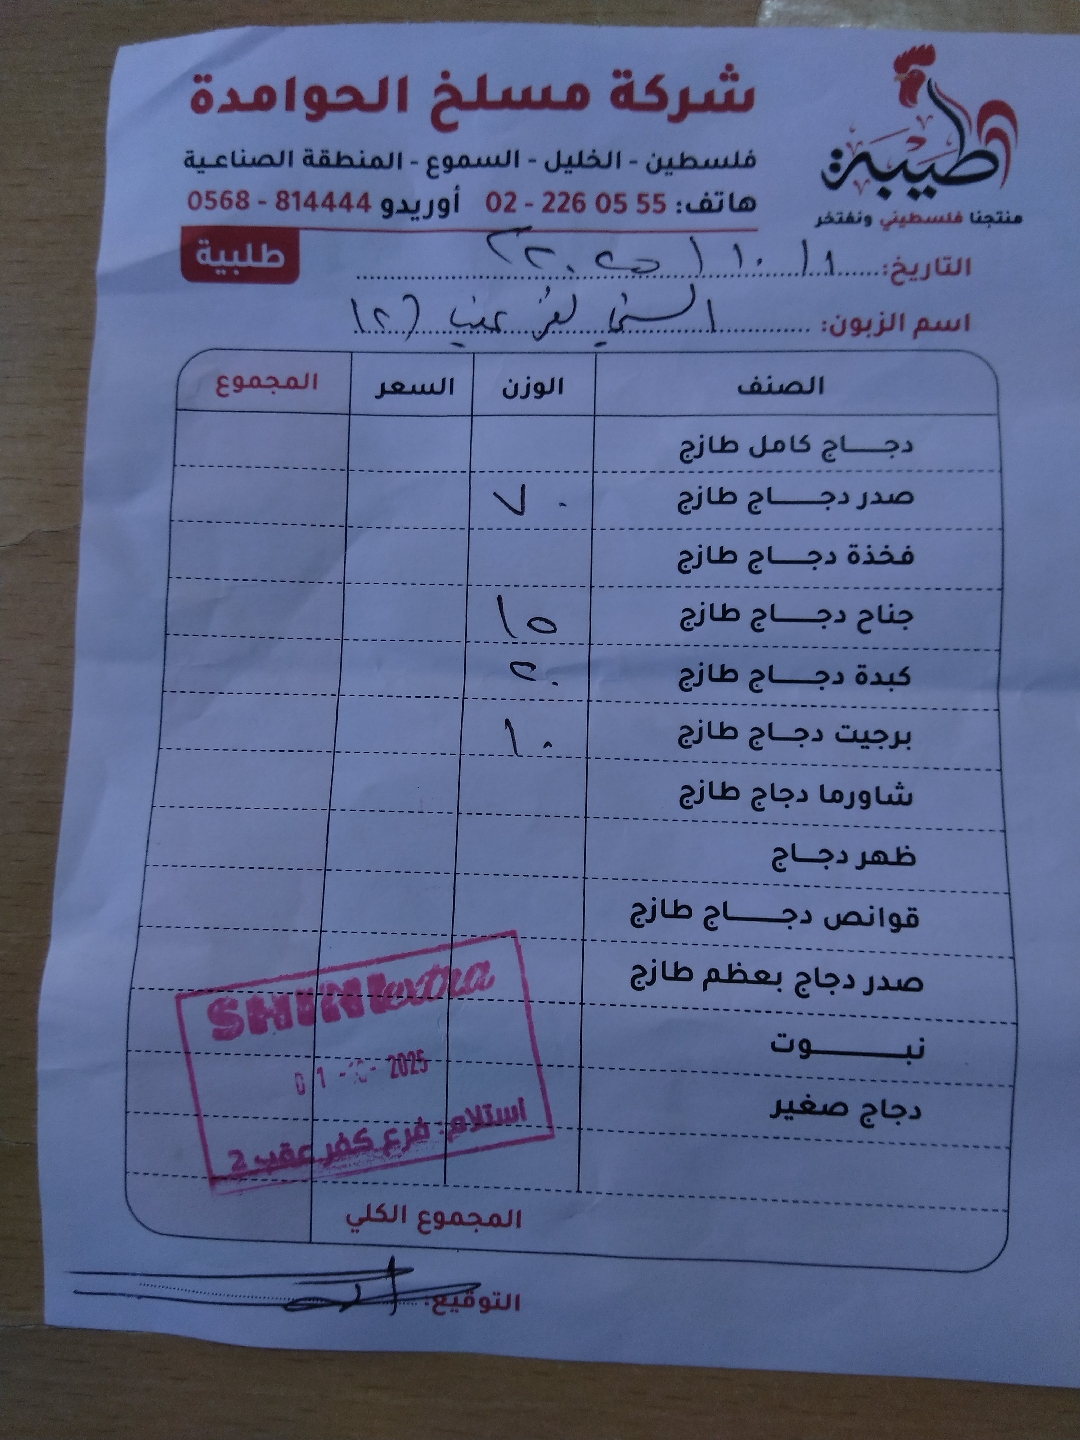 شركة مسلخ الحوامدة
فلسطين - الخليل - السموع - المنطقة الصناعية
هاتف: 02 - 226 05 55 أوريدو 0568 - 814444
طيبة
منتجنا فلسطيني ونفتخر
طلبية
التاريخ: ١ / ١٠ / ٢٠٢٥
اسم الزبون: الشني كفر عقب (٢)
الصنف الوزن السعر المجموع
دجاج كامل طازج
صدر دجاج طازج ٧٠
فخذة دجاج طازج
جناح دجاج طازج ١٥
كبدة دجاج طازج ٢٠
برجيت دجاج طازج ١٠
شاورما دجاج طازج
ظهر دجاج
قوانص دجاج طازج
صدر دجاج بعظم طازج
نبوت
دجاج صغير
SHINI extra
01 -10- 2025
استلام: فرع كفر عقب 2
المجموع الكلي
التوقيع: